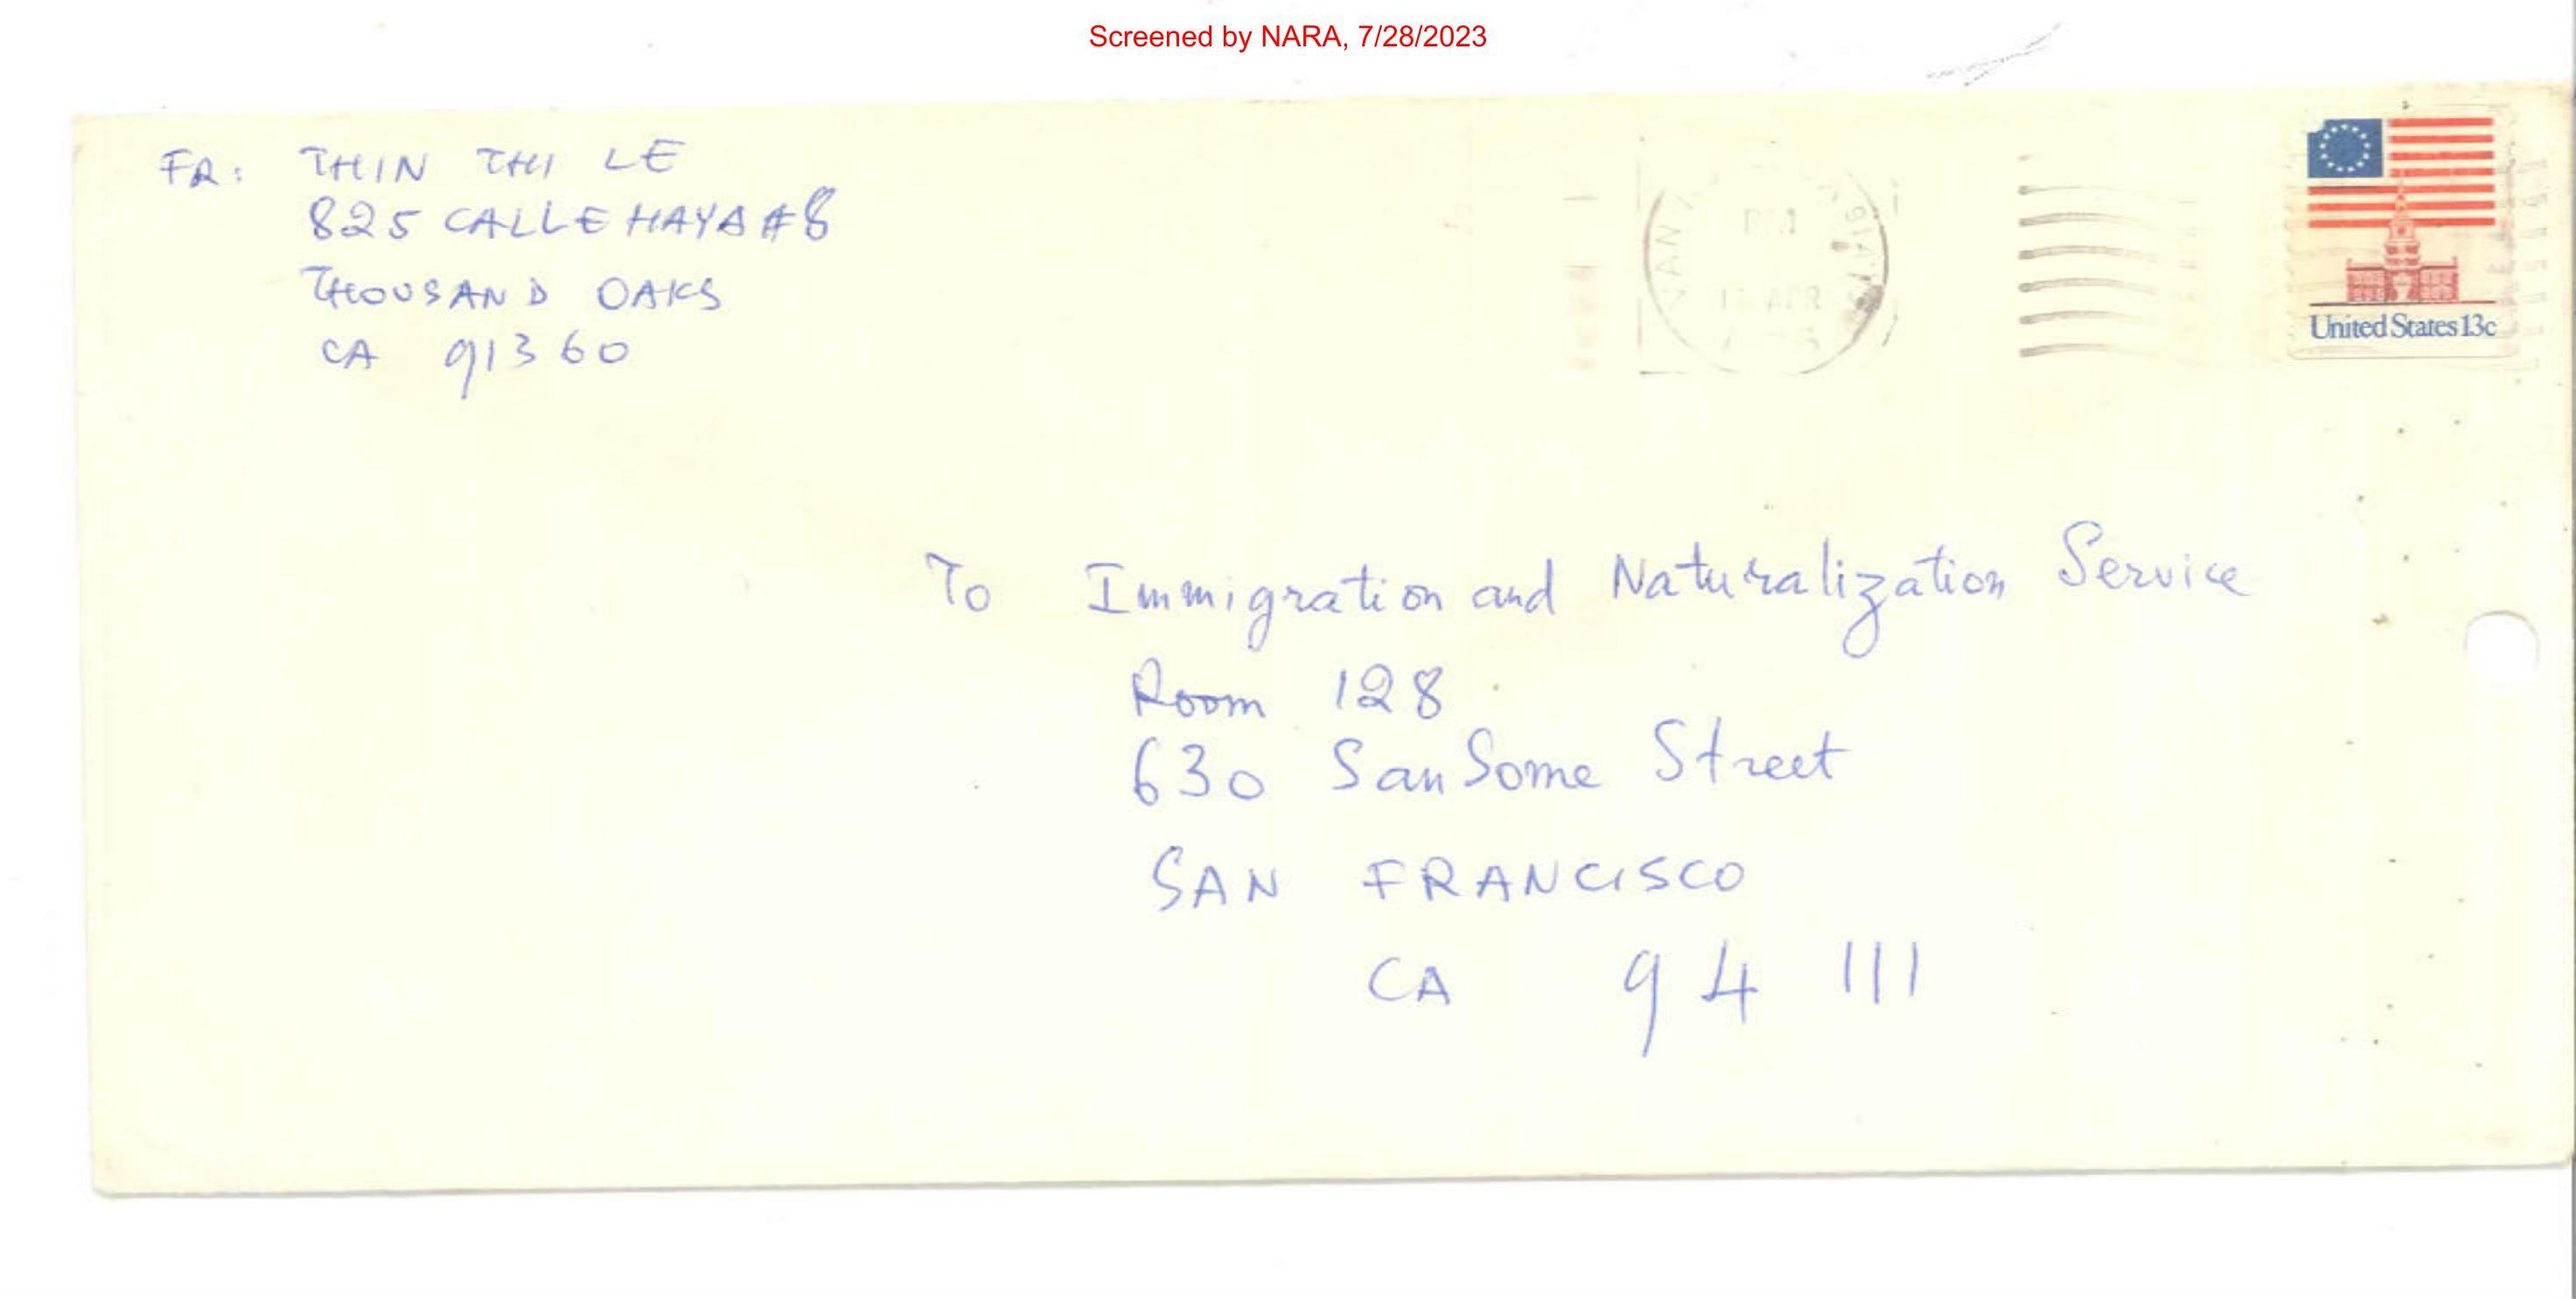 Screened by NARA, 7/28/2023
FR: THIN THI LE
825 CALLE HAYA #8
THOUSAND OAKS
CA 91360
PM
United States 13c
To Immigration and Naturalization Service
Room 128
630 SanSome Street
SAN FRANCISCO
CA 94111